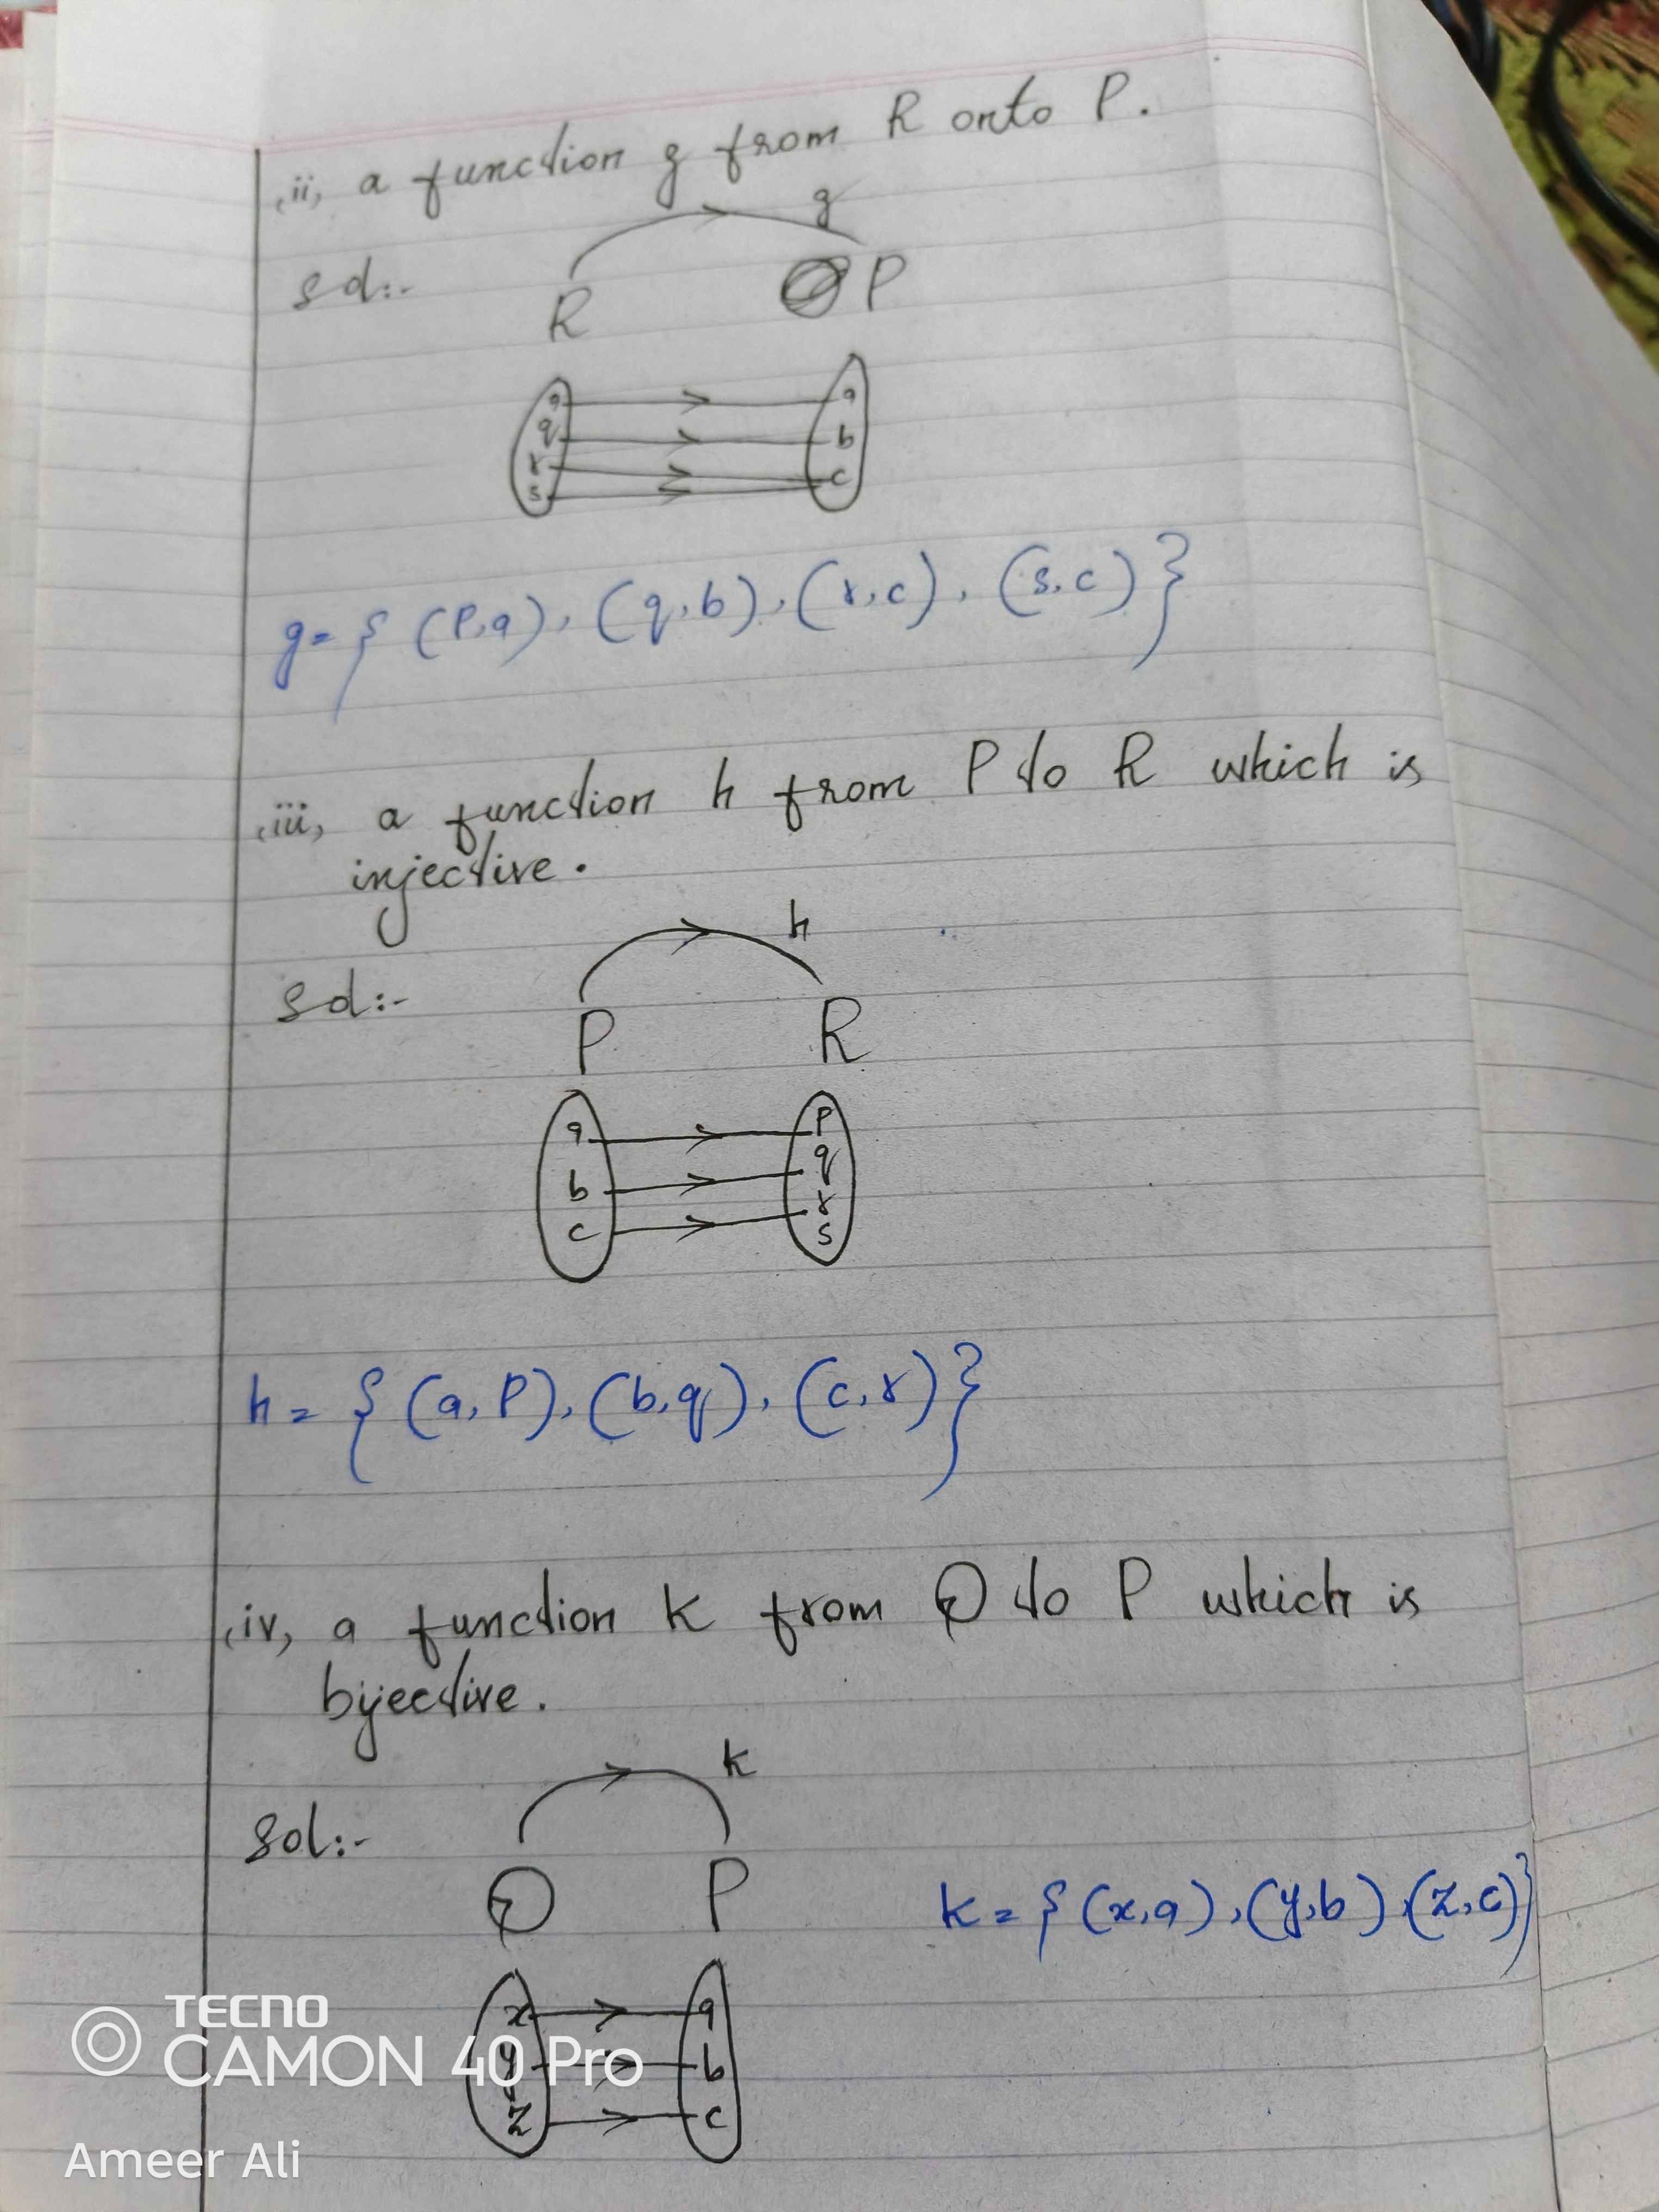 (ii) a function g from R onto P.
g
Sol:-
R P
a a
q b
r c
s
g = { (P,a), (q,b), (r,c), (s,c) }
(iii) a function h from P to R which is
injective.
h
Sol:-
P R
a p
b q
c r
s
h = { (a,P), (b,q), (c,r) }
(iv) a function K from Q to P which is
bijective.
k
Sol:-
Q P
K = { (x,a), (y,b), (z,c) }
x a
y b
z c
TECNO
CAMON 40 Pro
Ameer Ali